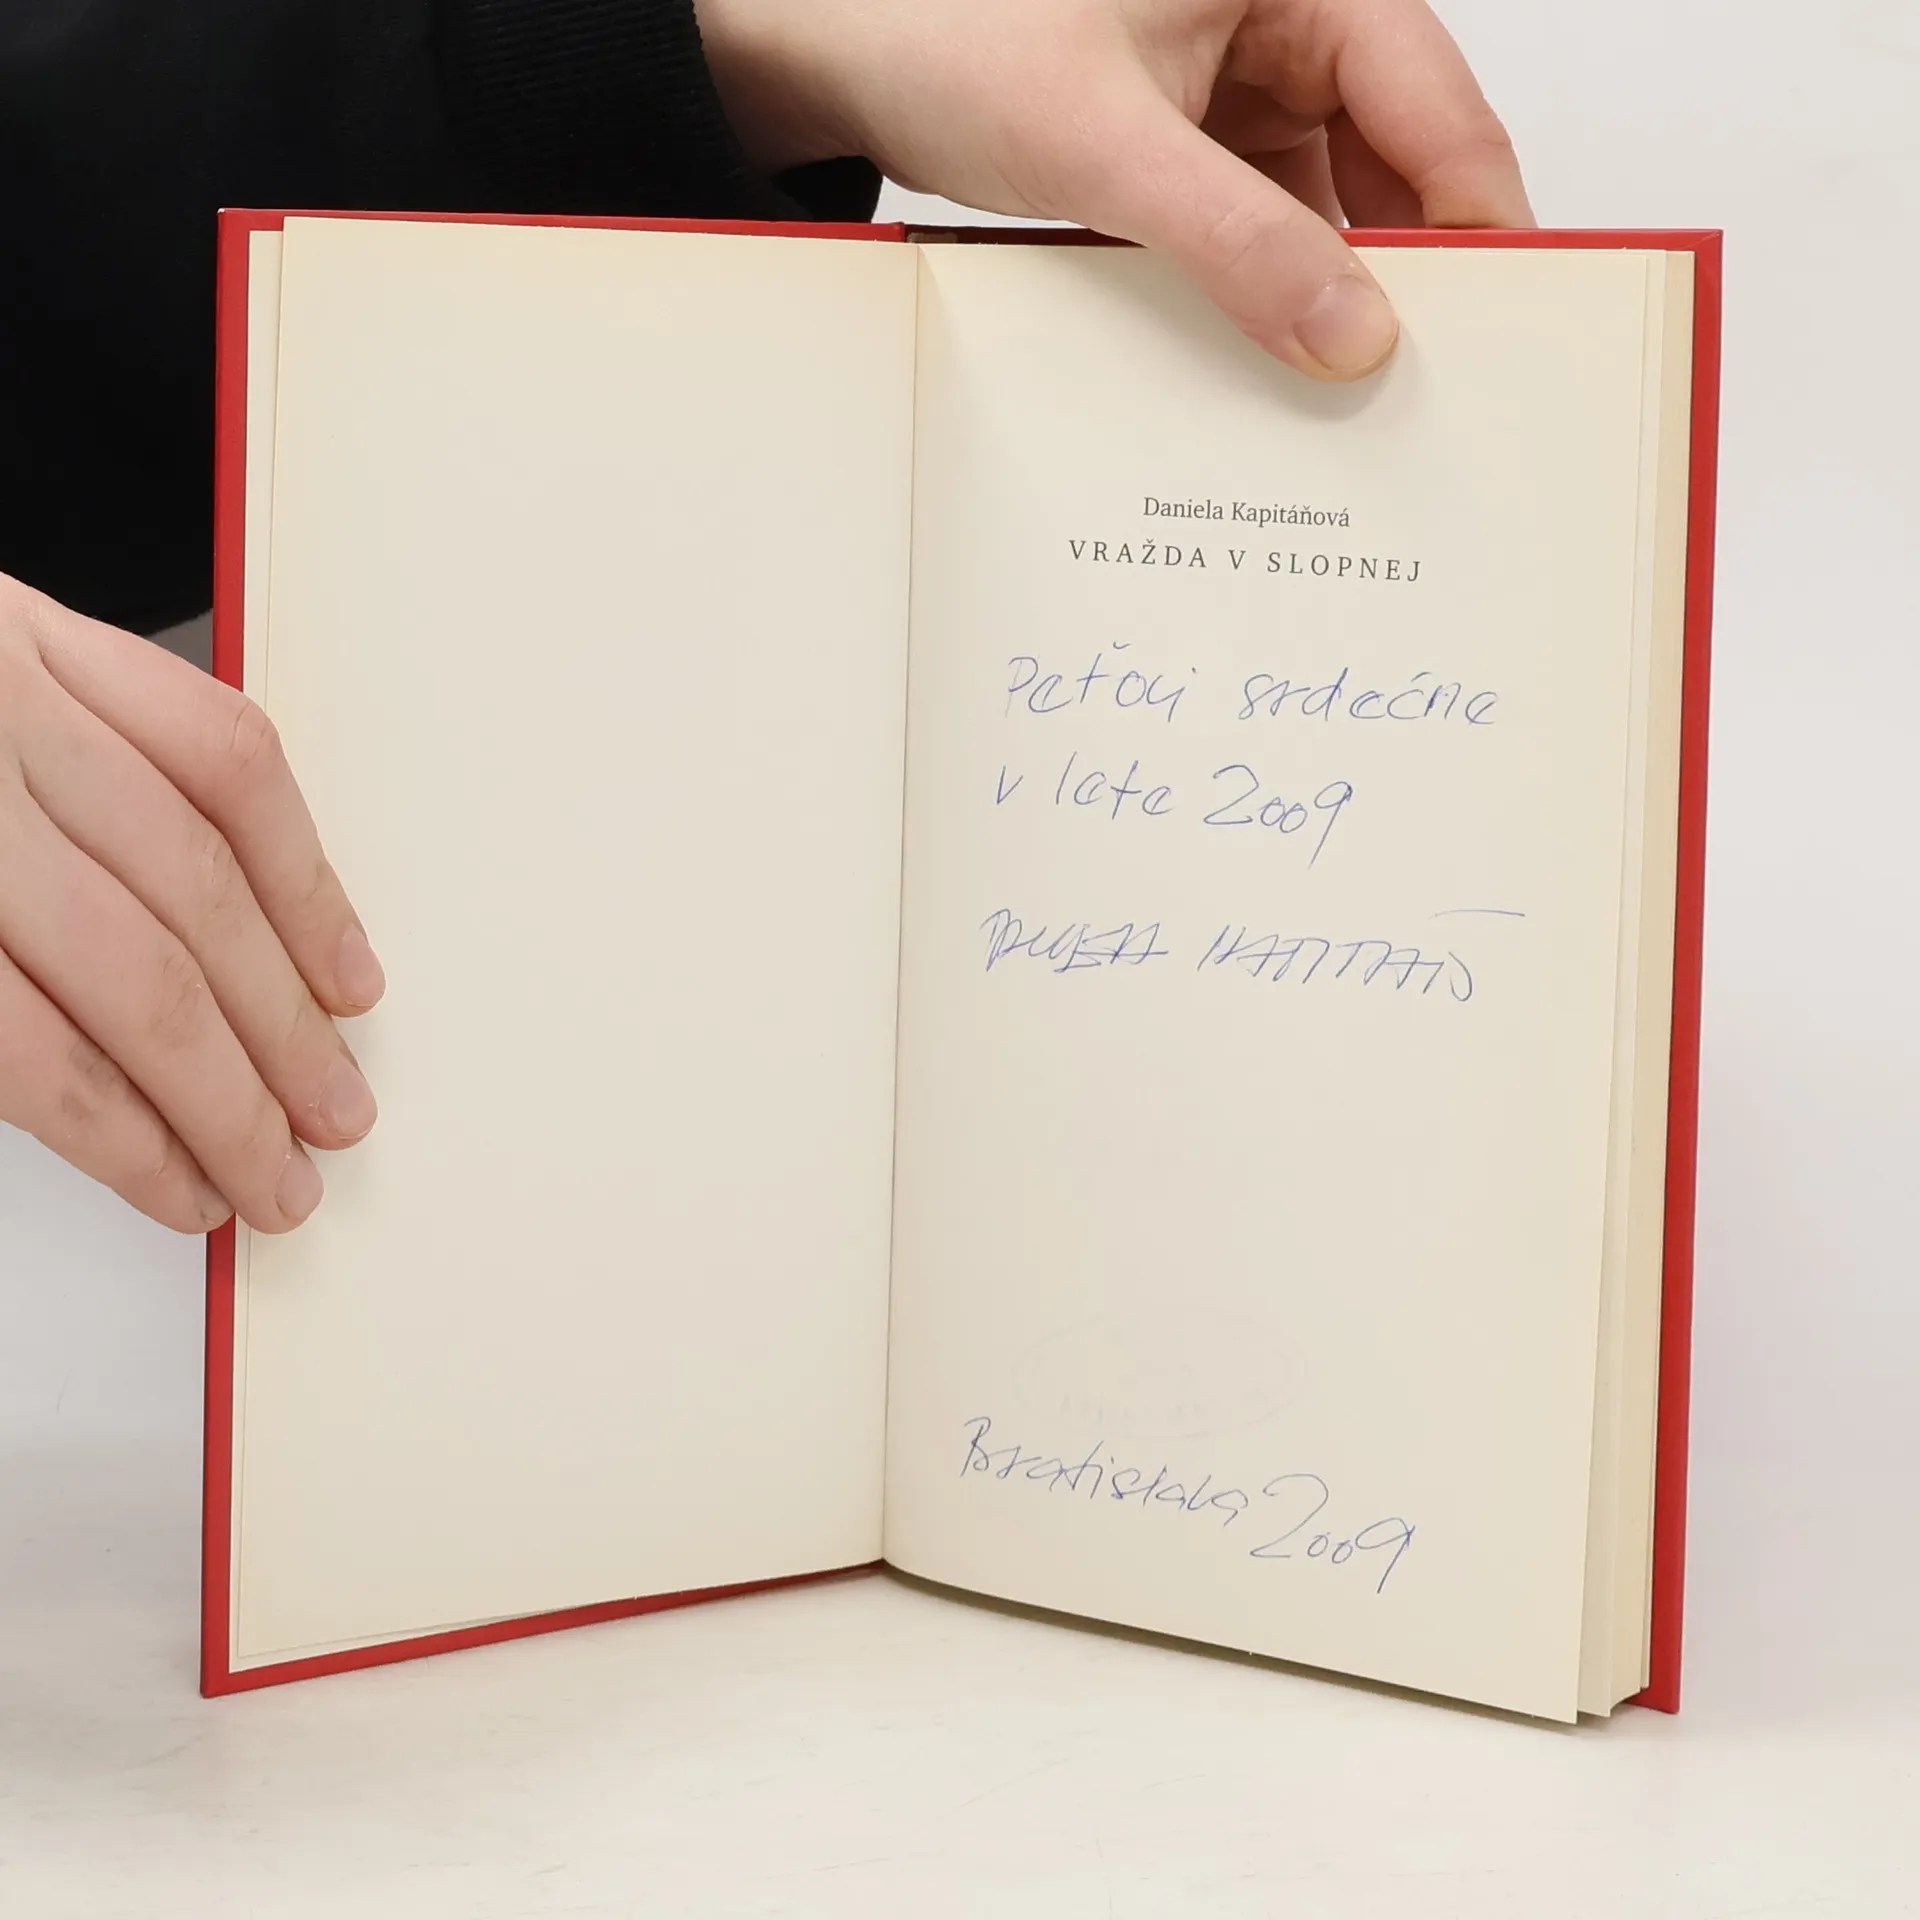 Daniela Kapitáňová
VRAŽDA V SLOPNEJ
Peťovi srdečne
v lete 2009
Bratislava 2009